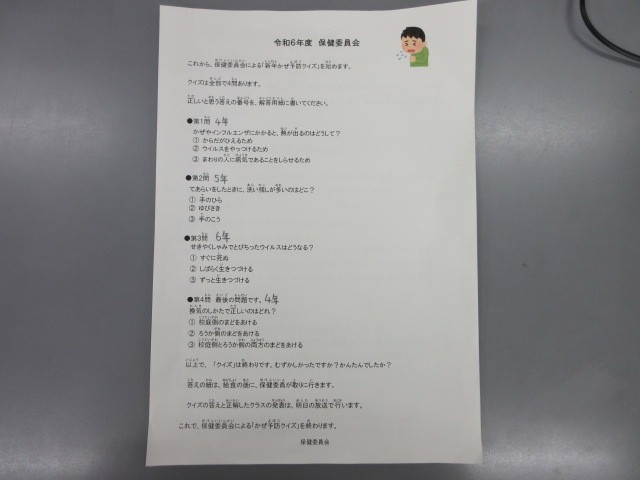 令和６年度　保健委員会
これから、保健委員会による「新年かぜ予防クイズ」を始めます。
クイズは全部で４問あります。
正しいと思う答えの番号を、解答用紙に書いてください。
●第１問 4年
かぜやインフルエンザにかかると、熱が出るのはどうして？
① からだがひえるため
② ウイルスをやっつけるため
③ まわりの人に病気であることをしらせるため
●第２問 5年
てあらいをしたときに、洗い残しが多いのはどこ？
① 手のひら
② ゆびさき
③ 手のこう
●第３問 6年
せきやくしゃみでとびちったウイルスはどうなる？
① すぐに死ぬ
② しばらく生きつづける
③ ずっと生きつづける
●第４問 最後の問題です。 4年
換気のしかたで正しいのはどれ？
① 校庭側のまどをあける
② ろうか側のまどをあける
③ 校庭側とろうか側の両方のまどをあける
以上で、「クイズ」は終わりです。むずかしかったですか？かんたんでしたか？
答えの紙は、給食の後に、保健委員が取りに行きます。
クイズの答えと正解したクラスの発表は、明日の放送で行います。
これで、保健委員会による「かぜ予防クイズ」を終わります。
保健委員会